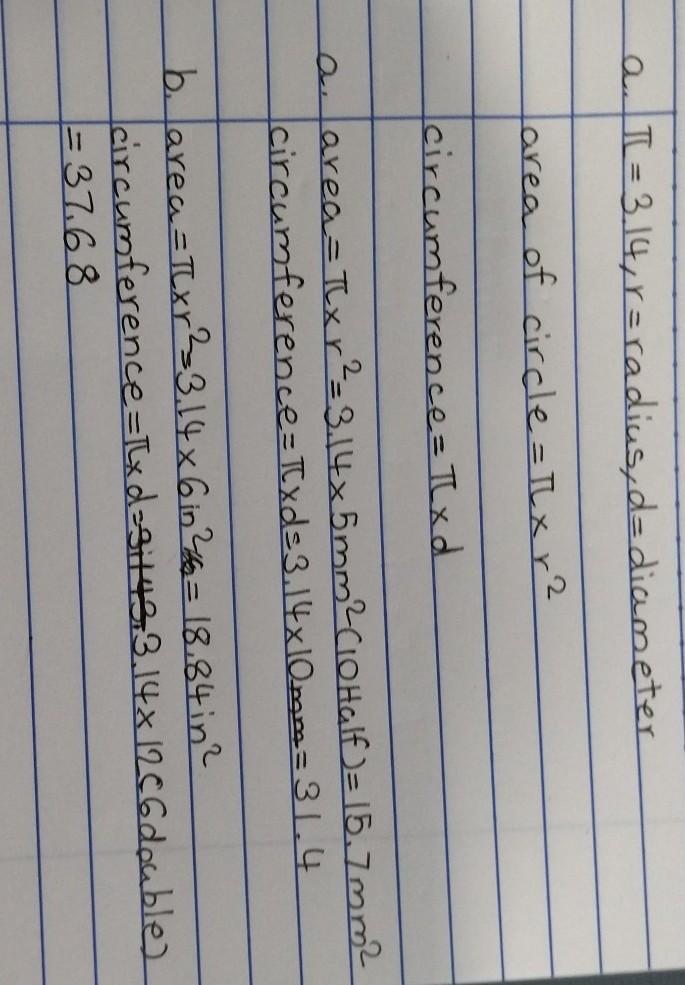 a. π = 3.14, r = radius, d = diameter
area of circle = π x r²
circumference = π x d
a. area = π x r² = 3.14 x 5mm² (10 Half) = 15.7mm²
circumference = π x d = 3.14 x 10mm = 31.4
b. area = π x r² = 3.14 x 6in² = 18.84in²
circumference = π x d = 3.14 x 12 (6 double)
= 37.68